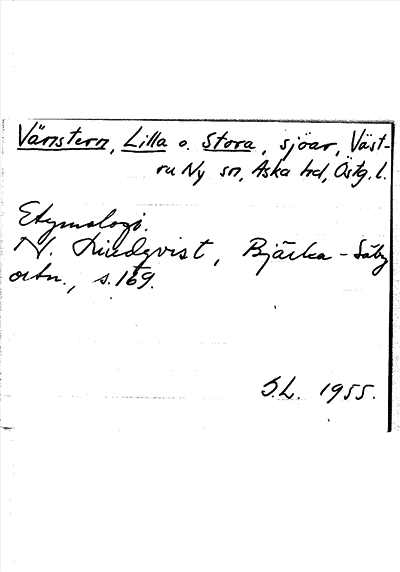 Vänstern, Lilla o. Stora, sjöar, Väst-
ra Ny sn, Aska hd, Östg. l.
Etymologi.
N. Lindqvist, Bjärka-Säby
ortn., s. 169.
S.L. 1955.